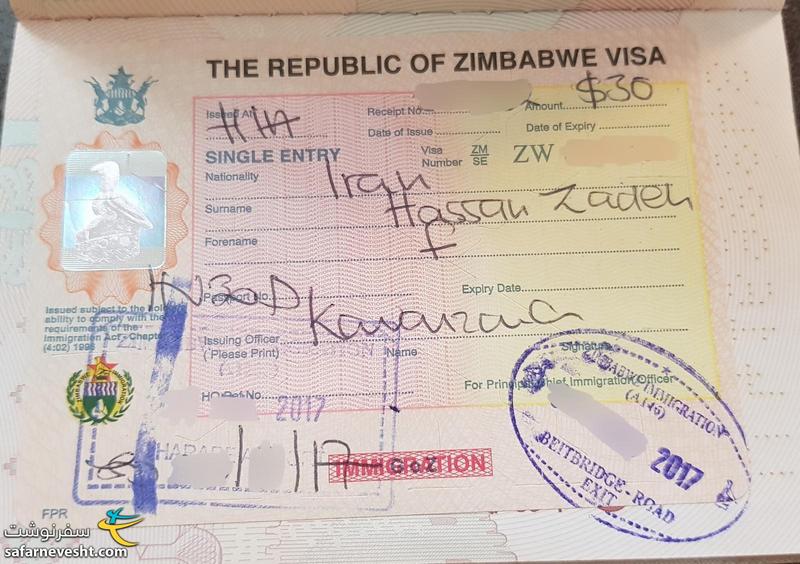 THE REPUBLIC OF ZIMBABWE VISA
Issued At HIA Receipt No. Amount $30
Date of Issue Date of Expiry
SINGLE ENTRY Visa Number ZM SE ZW
Nationality Iran
Surname Hassan Zadeh
Forename F
IV30D
Passport No. Expiry Date
Issued subject to the holder's
ability to comply with the
requirements of the
Immigration Act - Chapter
(4:02) 1996
Issuing Officer
(Please Print) Name Signature
For Principal/Chief Immigration Officer
H.O. Ref No.
2017
HARARE
17
IMMIGRATION
ZIMBABWE IMMIGRATION
(A146)
2017
BEITBRIDGE - ROAD
EXIT
FPR
سفرنوشت
safarnevesht.com